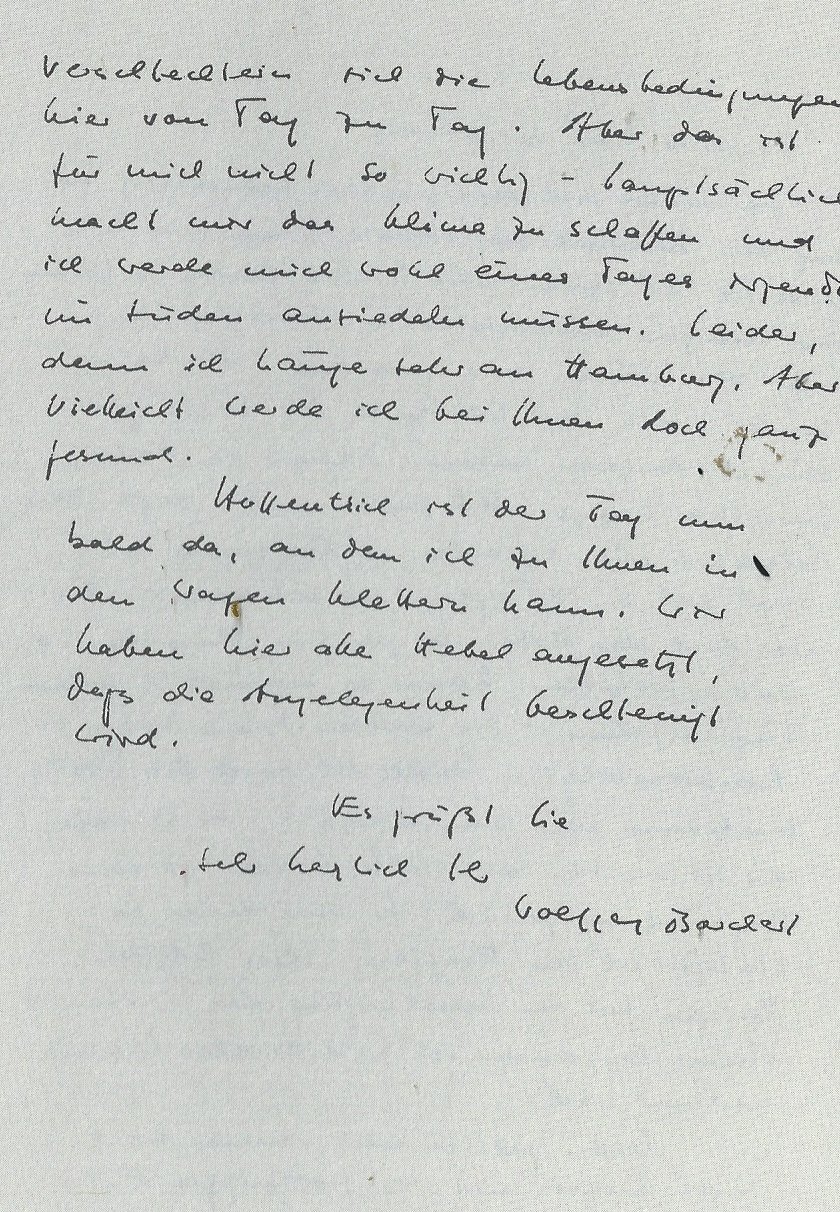 verschlechtern sich die Lebensbedingungen
hier von Tag zu Tag. Aber das ist
für mich nicht so wichtig – hauptsächlich
macht mir das Klima zu schaffen und
ich werde mich wohl eines Tages irgend
im Süden ansiedeln müssen. Leider,
denn ich hänge sehr an Hamburg. Aber
vielleicht werde ich bei Ihnen doch ganz
gesund.
Hoffentlich ist der Tag nun
bald da, an dem ich zu Ihnen in
den Wagen klettern kann. Wir
haben hier alle Hebel angesetzt,
dass die Angelegenheit beschleunigt
wird.
Es grüßt Sie
sehr herzlich Ihr
Wolfgang Borchert